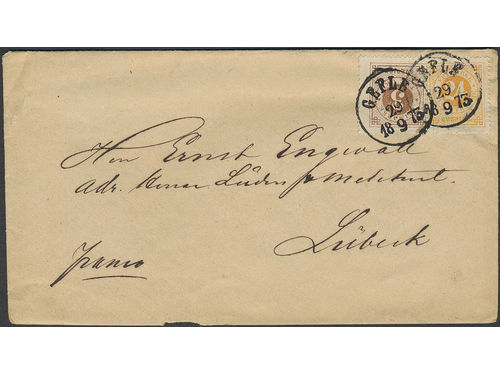 GEFLE
29
9
18 75
GEFLE
29
9
18 75
24
Herr Ernst Engwall
adr. Herrar Lüders
Lübeck
franco